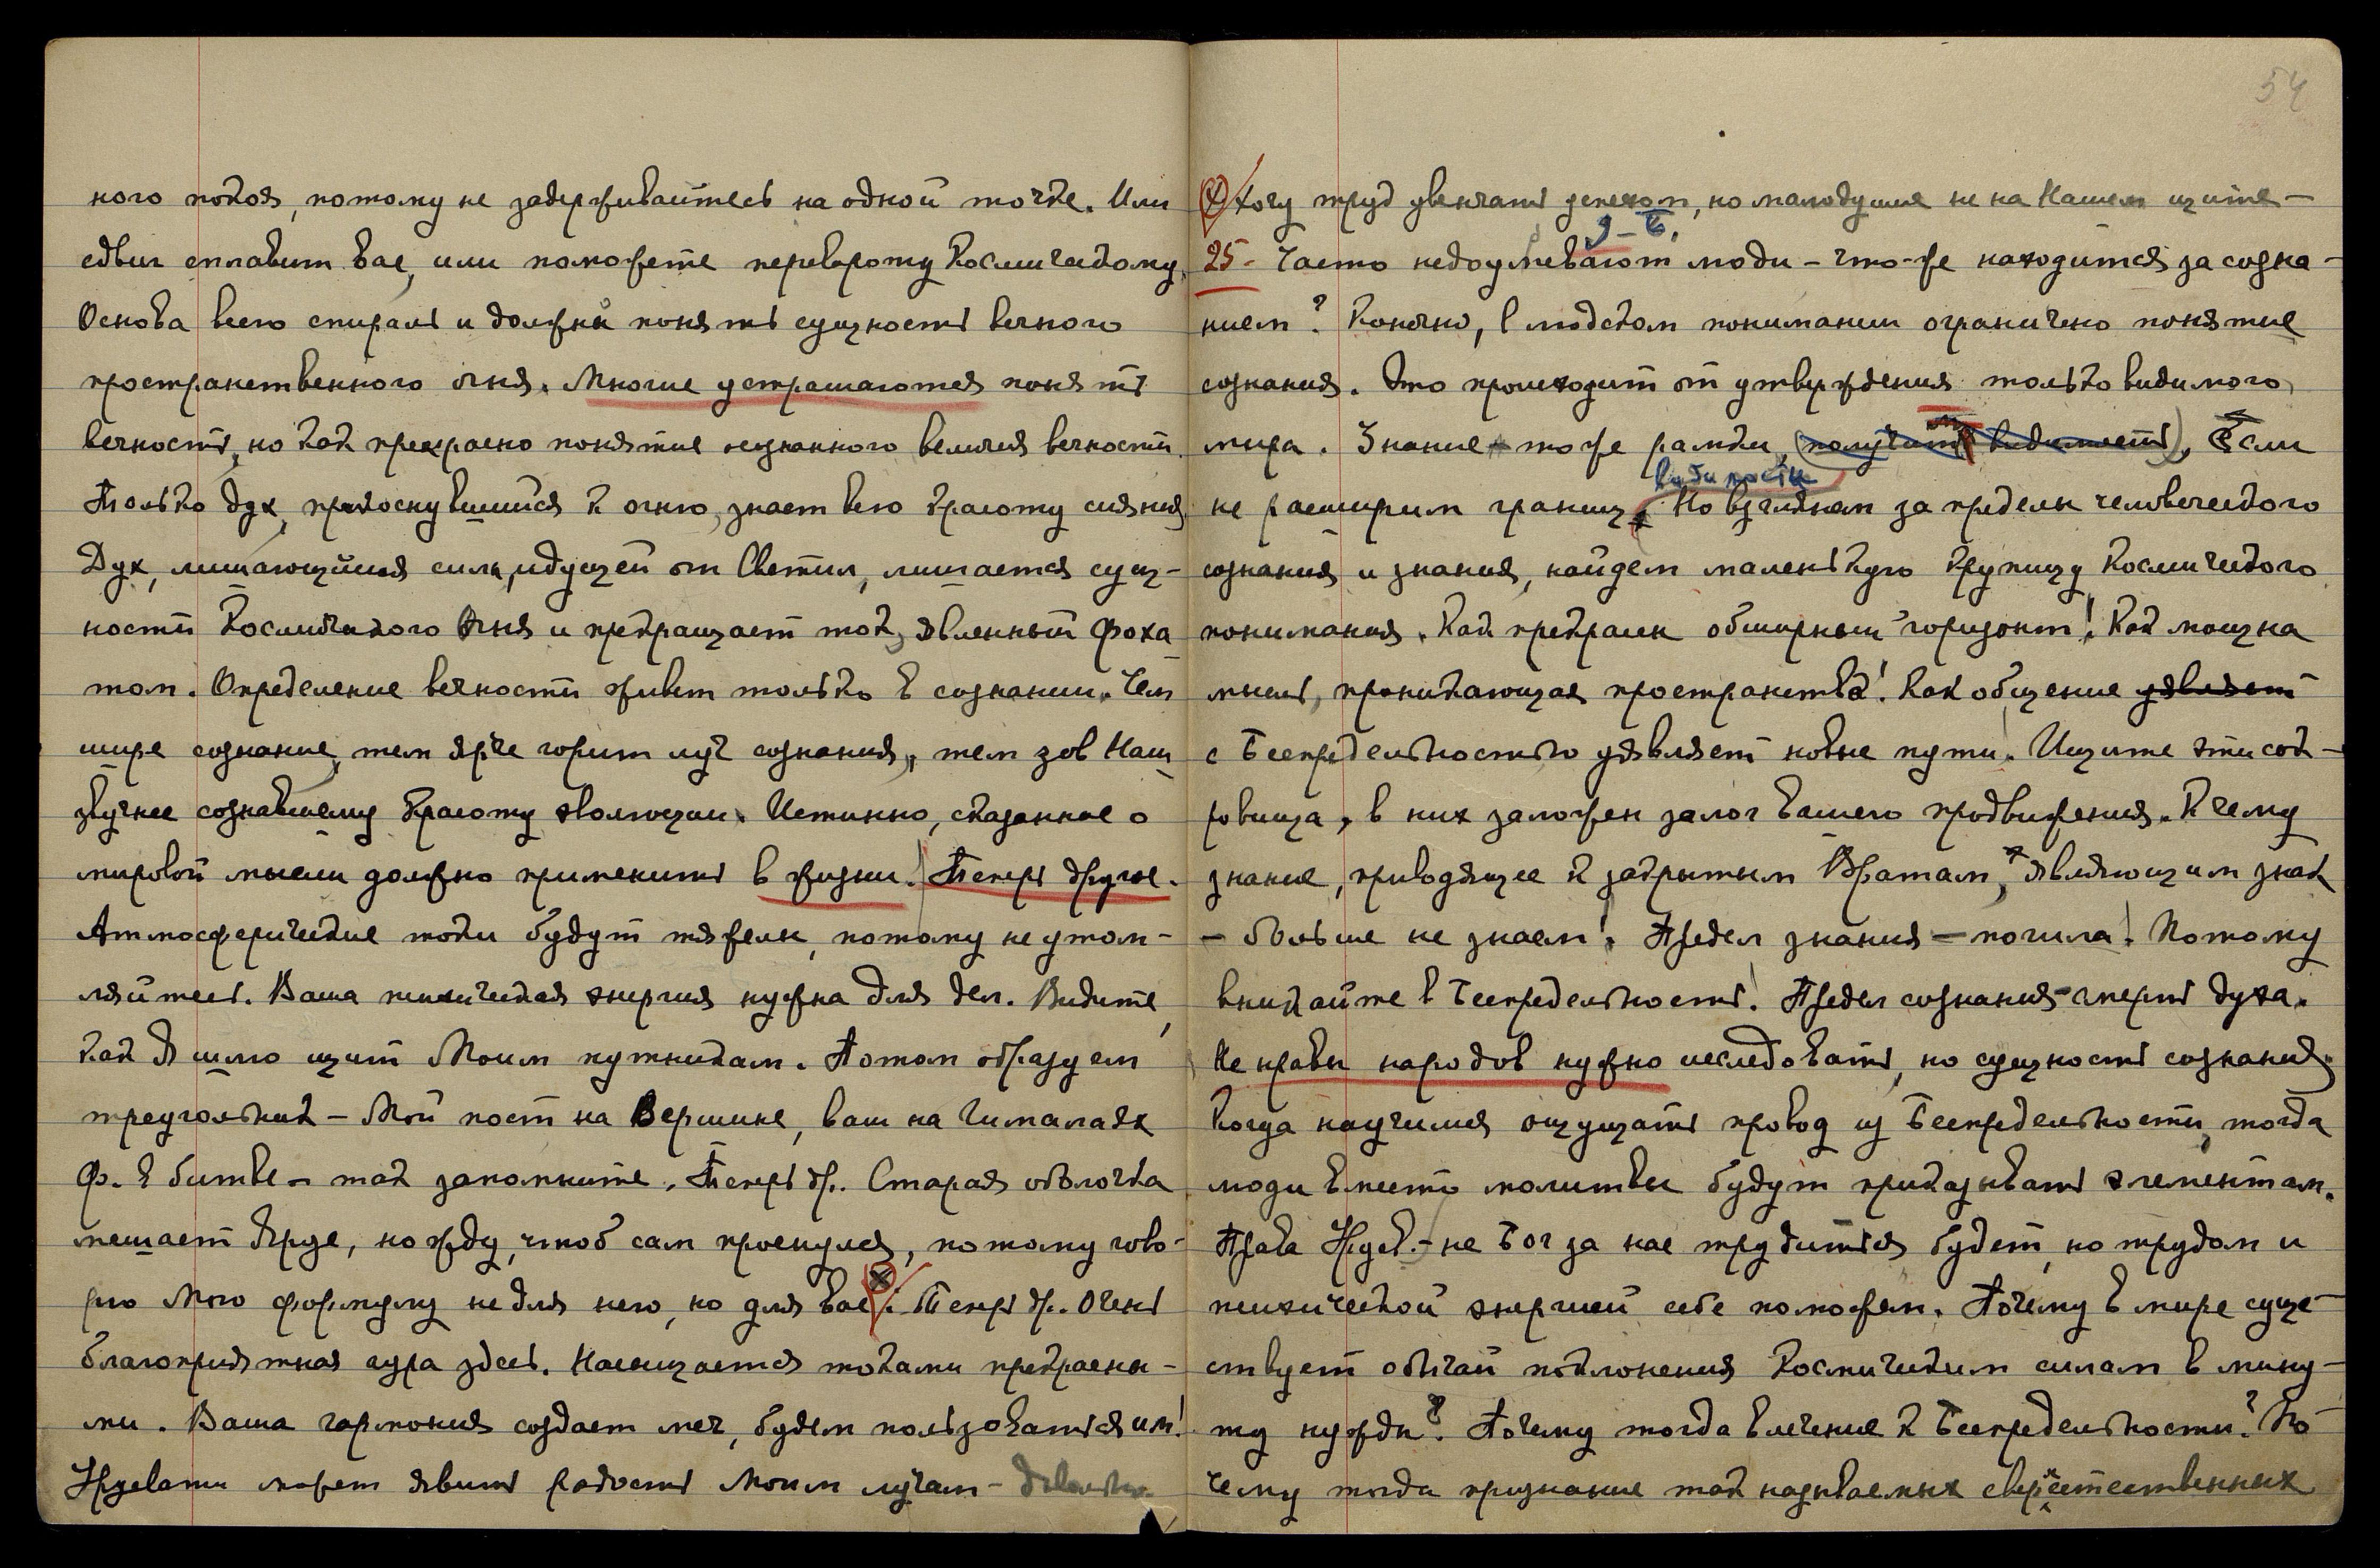 ного покоя, потому не задерживайтесь на одной точке. Или
сдвиг сплавит вас, или поможете перевороту Космическому.
Основа всего спираль и должны понять сущность вечного
пространственного огня. Многие устрашаются понять
вечность, но как прекрасно понятие осознанного величия вечности.
Только дух, прикоснувшийся к огню, знает всю красоту сияния
Дух, лишающийся силы, идущей от Светил, лишается сущ-
ности Космического Огня и прекращает ток, явленный Фоха
том. Определение вечности живет только в сознании. Чем
шире сознание, тем ярче горит луч сознания, тем зов Наш
звучнее сознавшему красоту эволюции. Истинно, сказанное о
мировой мысли должно применить в жизни. Теперь другое.
Атмосферические токи будут тяжелы, потому не утом-
ляйтесь. Ваша психическая энергия нужна для дел. Видите,
как Я шлю щит Моим путникам. Потом образуем
треугольник – Мой пост на Вершине, ваш на Гималаях
Ф. в битве – так запомните. Теперь др. Старая оболочка
мешает Яруе, но жду, чтоб сам проснулся, потому гово-
рю Мою формулу не для него, но для вас. Теперь др. Очень
благоприятная аура здесь. Насыщается токами прекрасны-
ми. Ваша гармония создает меч, будем пользоваться им!
Урусвати может явить радость Моим лучам – довольно
54
Хочу труд увенчать успехом, но малодушие не на Нашем щите –
9 – Б.
25 – Часто недоумевают люди – что-же находится за созна-
нием? Конечно, в людском понимании ограничено понятие
сознания. Это происходит от утверждения только видимого
мира. Знание – тоже рамки, (получит видимость), Если
видимости
не расширим границ. Но взглянем за пределы человеческого
сознания и знания, найдем маленькую крупицу Космического
понимания. Как прекрасен обширный горизонт! Как мощна
мысль, проникающая пространства! Как общение уявляет
с Беспредельностью уявляет новые пути! Ищите эти сок-
ровища, в них заложен залог вашего продвижения. К чему
знание, приводящее к закрытым Вратам, являющим знак
– больше не знаем! Предел знания – могила! Потому
вникайте в Беспредельность! Предел сознания – смерть духа.
Не нравы народов нужно исследовать, но сущность сознания.
Когда научимся ощущать провод из Беспредельности, тогда
люди вместо молитвы будут приказывать элементам.
Права Урусв. – не Бог за нас трудиться будет, но трудом и
психической энергией себе поможем. Почему в мире суще-
ствует обычай поклонения Космическим силам в мину-
ту нужды? Почему тогда влечение к Беспредельности? По-
чему тогда признание так называемых сверхъестественных